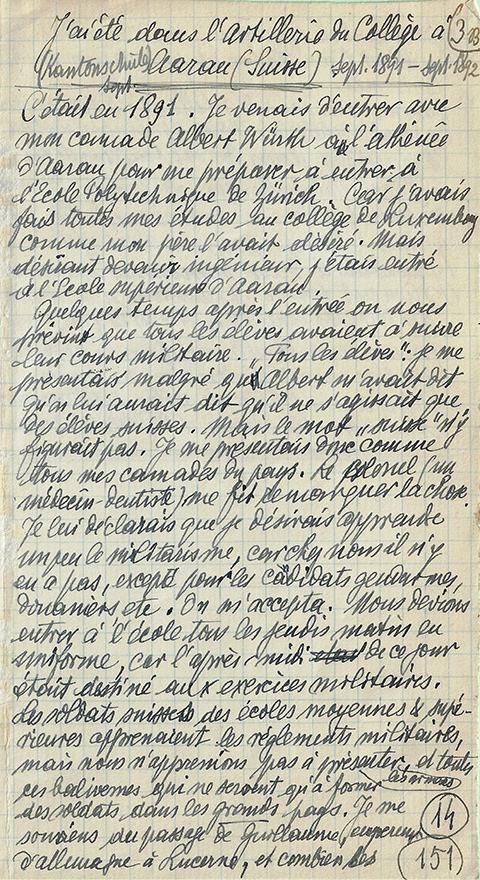 J'ai été dans l'Artillerie du Collège à
(Kantonschule) Aarau (Suisse) sept. 1891 – sept. 1892
sept.
C'était en 1891. Je venais d'entrer avec
mon camade Albert Würth à l'athénée
d'Aarau pour me préparer à entrer à
l'Ecole Polytechnique de Zürich. Car j'avais
fais toutes mes études au collège de Luxembourg
comme mon père l'avait désiré. Mais
désirant devenir ingénieur, j'étais entré
à l'Ecole supérieure d'Aarau.
Quelques temps après l'entrée on nous
prévint que tous les élèves avaient à suivre
leur cours militaire. „Tous les élèves". Je me
présentais malgré qu' Albert m'avait dit
qu'on lui aurait dit qu'il ne s'agissait que
des élèves suisses. Mais le mot „suisse" n'y
figurait pas. Je me présentais donc comme
tous mes camades du pays. Le colonel (un
médecin-dentiste) me fit remarquer la chose.
Je lui déclarais que je désirais apprendre
un peu le militarisme, car chez nous il n'y
en a pas, excepté pour les cādidats gendarmes,
douaniers etc. On m'accepta. Nous devions
entrer à l'école tous les jeudis matin en
uniforme, car l'après-midi de ce jour
était destiné aux exercices militaires.
Les soldats suisses des écoles moyennes & supé-
rieures apprenaient les règlements militaires,
mais nous n'apprenions pas à présenter, et toutes
les armes
ces balivernes qui ne servent qu'à former
des soldats dans les grands pays. Je me
souviens du passage de Guillaume, empereur
d'allemagne à Lucerne, et combien les
14
151